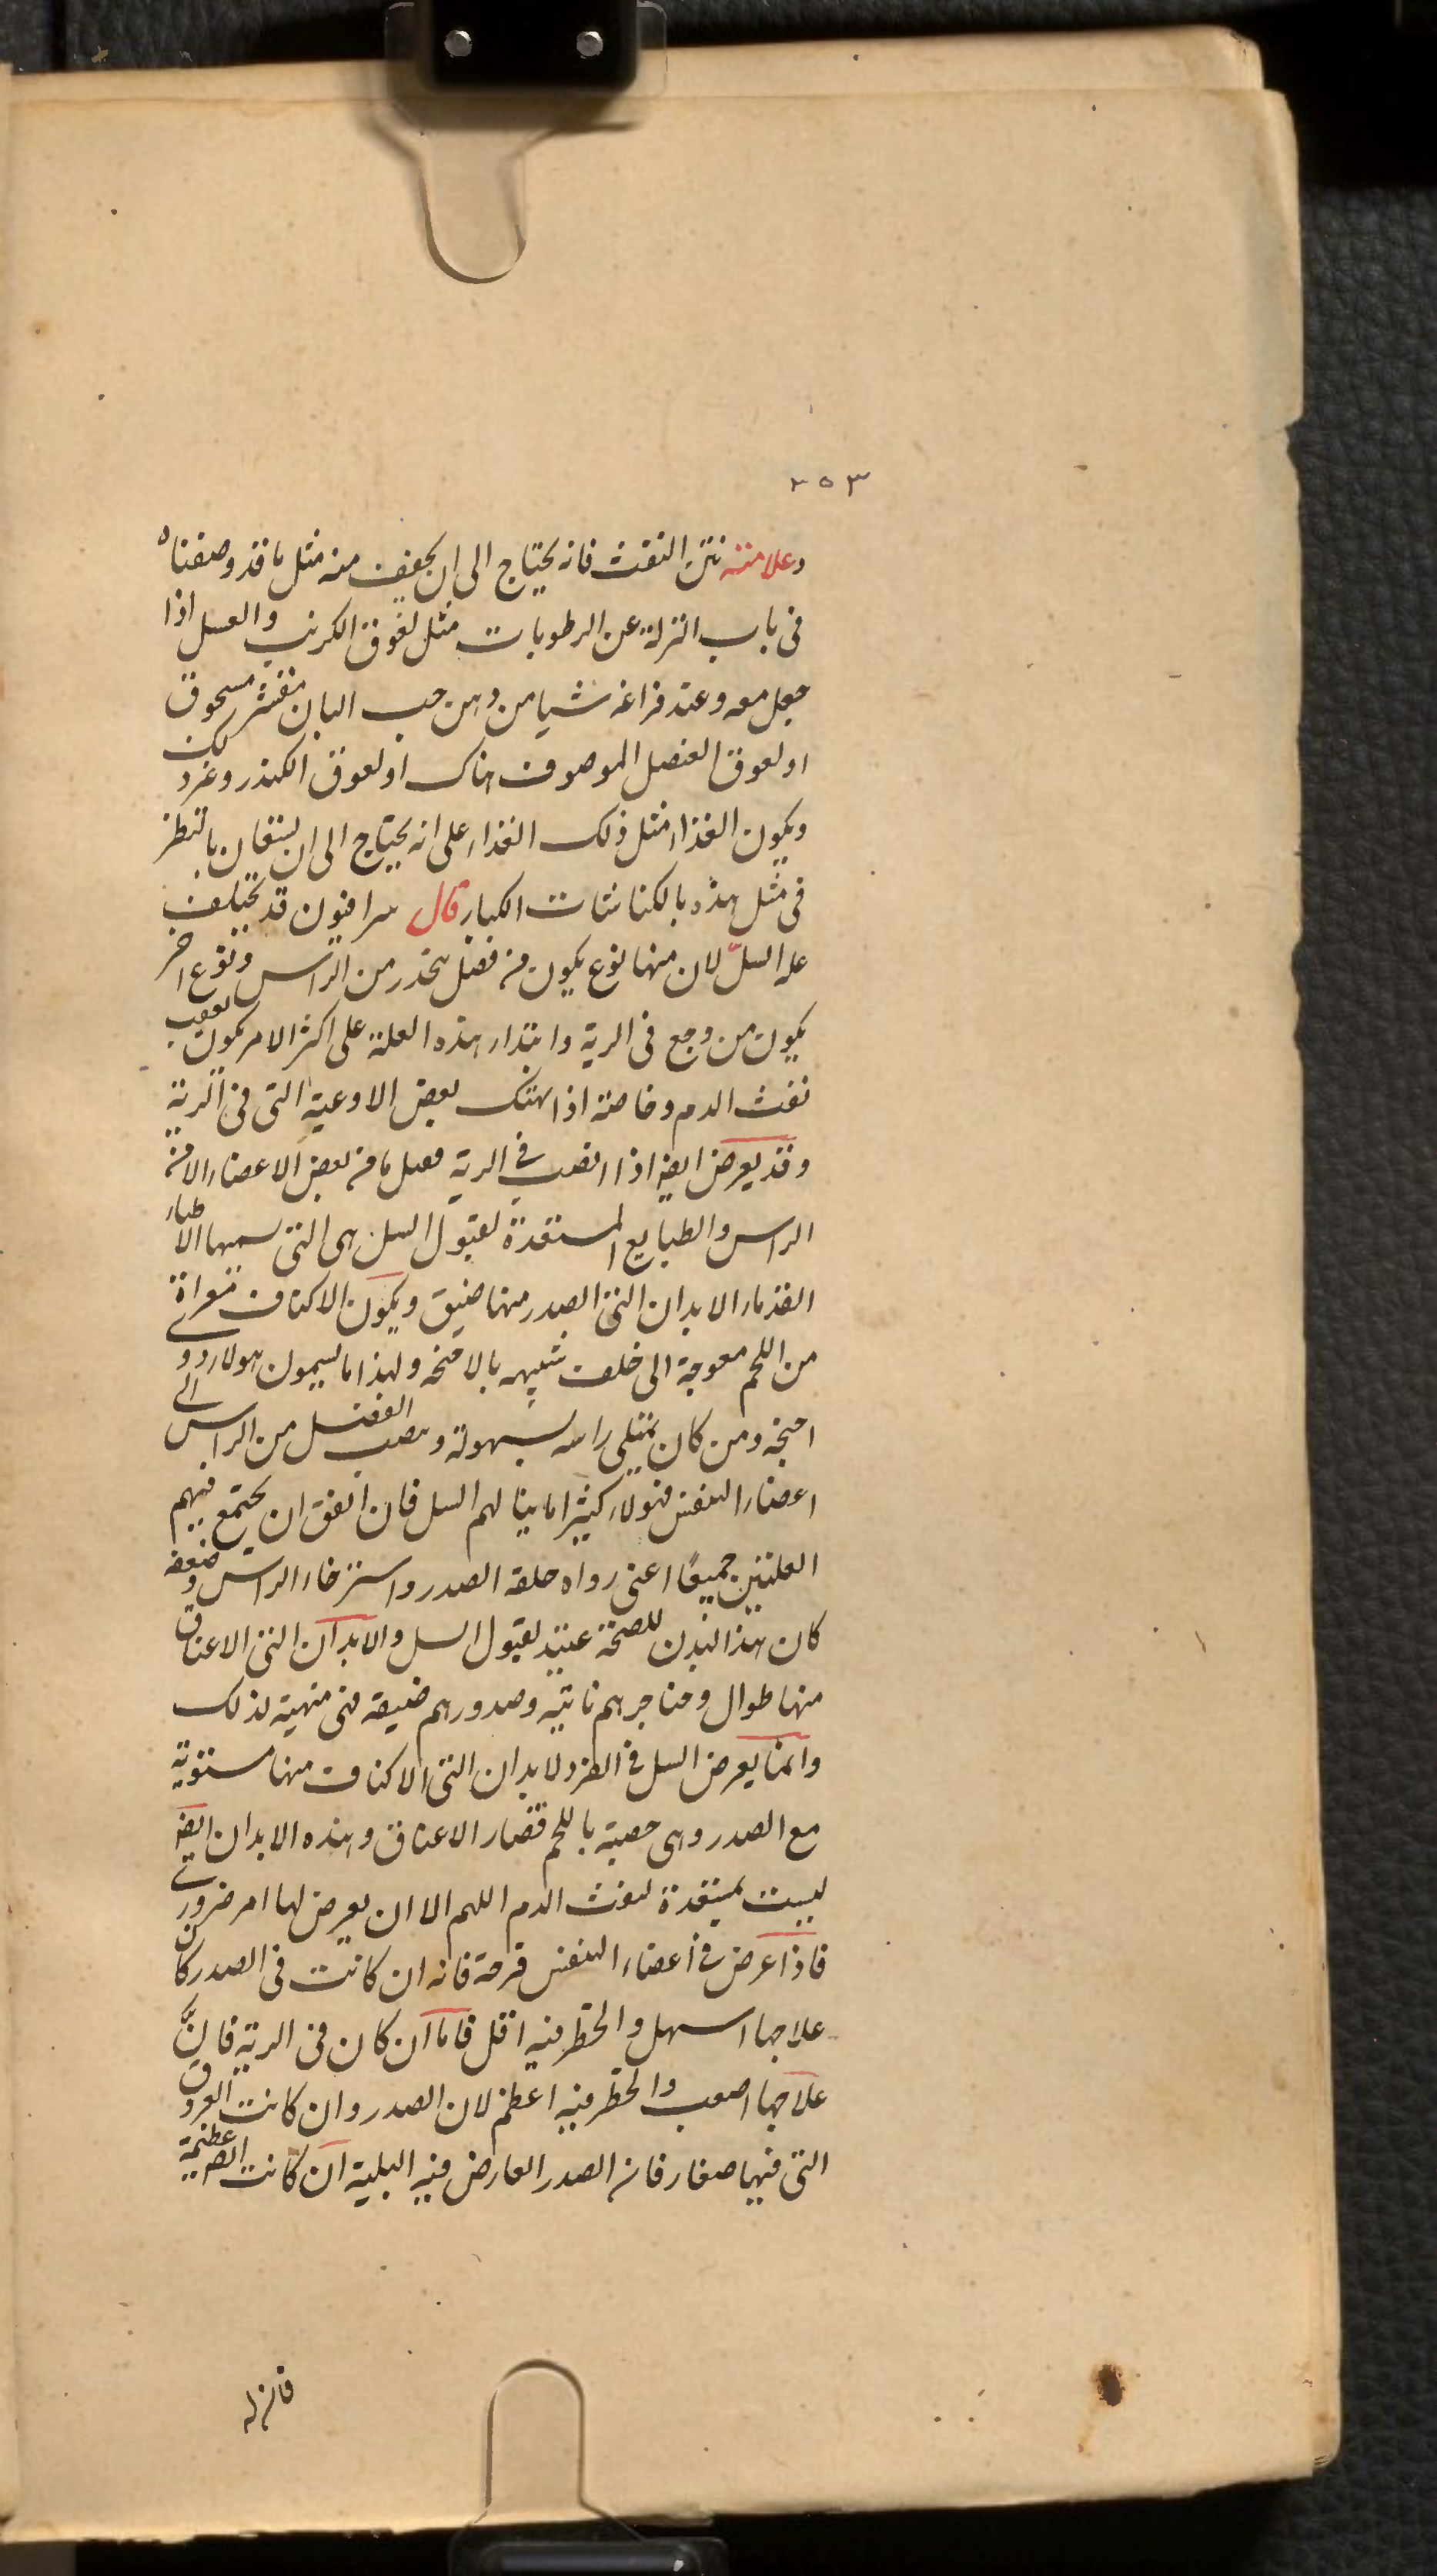 ٣٥٣
وعلامته نتن النفث فانه يحتاج الى ان يجفف منه مثل ما قد وصفناه
فى باب النزلة عن الرطوبات مثل لعوق الكرنب والعسل اذا
جعل معه وعند فراغه شيا من دهن حب البان مقشر مسحوق
او لعوق العنصل الموصوف هناك او لعوق الكندر وغير ذلك
ويكون الغذاء مثل ذلك الغذاء على انه يحتاج الى ان يستعان بالنظر
فى مثل هذه بالكناشات الكبار قال سرافيون قد يختلف
علة السلّ لان منها نوع يكون من فضل ينحدر من الراس ونوع اخر
يكون من وجع فى الرية وابتداء هذه العلة على اكثر الامر يكون بعقب
نفث الدم وخاصة اذا هتك بعض الاوعية التى فى الرية
وقد يعرض ايضا اذا انصب فى الرية فضل ما من بعض الاعضاء الا من
الراس والطبايع المستعدة لقبول السل هى التى سميها الاطباء
القدماء الابدان التى الصدر منها ضيق ويكون الاكتاف معراة
من اللحم معوجة الى خلف شبيهه بالاجنحه ولهذا ما يسمون هولاء ذوى
اجنحه ومن كان يمتلى راسه بسهولة وينصب الفضل من الراس الى
اعضاء التنفس فهولاء كثيرا ما ينالهم السل فان اتفق ان يجتمع فيهم
العلتين جميعًا اعنى رداه خلقه الصدر واسترخاء الراس وضعفه
كان هذا البدن للصحة عتيد لقبول السل والابدان التى الاعناق
منها طوال وحناجرهم ناتيه وصدورهم ضيقة فهى متهية لذلك
وانما يعرض السل فى الفرد لابدان التى الاكتاف منها مستوية
مع الصدر وهى خصبة باللحم قصار الاعناق وهذه الابدان ايضا
ليست بمستعدة لنفث الدم اللهم الا ان يعرض لها امر ضرورى
فاذا عرض فى اعضاء التنفس قرحة فانه ان كانت فى الصدر كان
علاجها اسهل والخطر فيه اقل فاما ان كان فى الرية فانَّ
علاجها اصعب والخطر فيه اعظم لان الصدر وان كانت العروق
التى فيها صغار فان الصدر العارض فيه البلية ان كانت عظيمة
فانزله